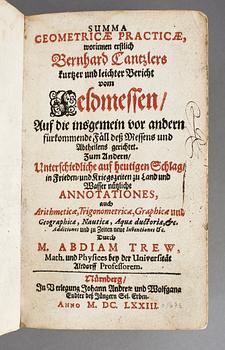 SUMMA
GEOMETRICÆ PRACTICÆ,
worinnen erstlich
Bernhard Cantzlers
kurtzer und leichter Bericht
vom
Feldmessen/
Auf die insgemein vor andern
fürkommende Fäll deß Messens und
Abtheilens gerichtet.
Zum Andern/
Unterschiedliche auf heutigen Schlag/
in Frieden- und Kriegszeiten zu Land und
Wasser nützliche
ANNOTATIONES,
auch
Arithmeticæ, Trigonometricæ, Graphicæ und
Geographicæ, Nautica, Aquæ ductoriæ, &c.
Additiones und zu Zeiten neue Inventiones &c.
Durch
M. ABDIAM TREW,
Math. und Physices bey der Universität
Altdorff Professorem.
Nürnberg/
In Verlegung Johann Andreæ und Wolfgang
Endter deß Jüngern Sel. Erben.
ANNO M. DC. LXXIII.